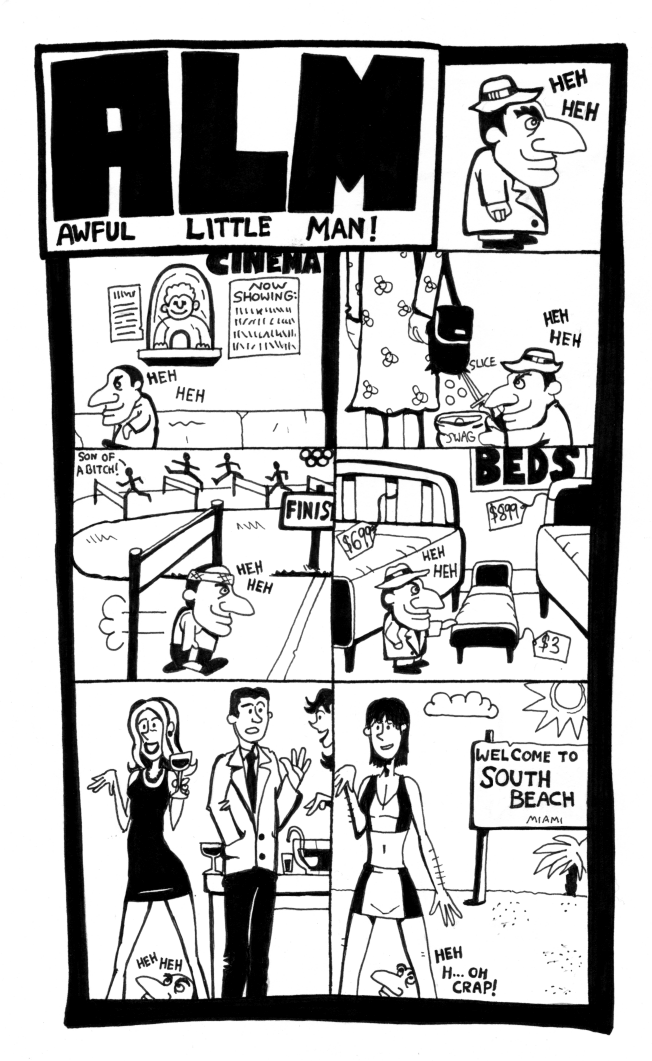 ALM
AWFUL LITTLE MAN!
HEH
HEH
CINEMA
NOW
SHOWING:
HEH
HEH
SLICE
HEH
HEH
SWAG
SON OF
A BITCH!
FINIS
HEH
HEH
BEDS
$699
$899
HEH
HEH
$3
HEH HEH
WELCOME TO
SOUTH
BEACH
MIAMI
HEH
H... OH
CRAP!